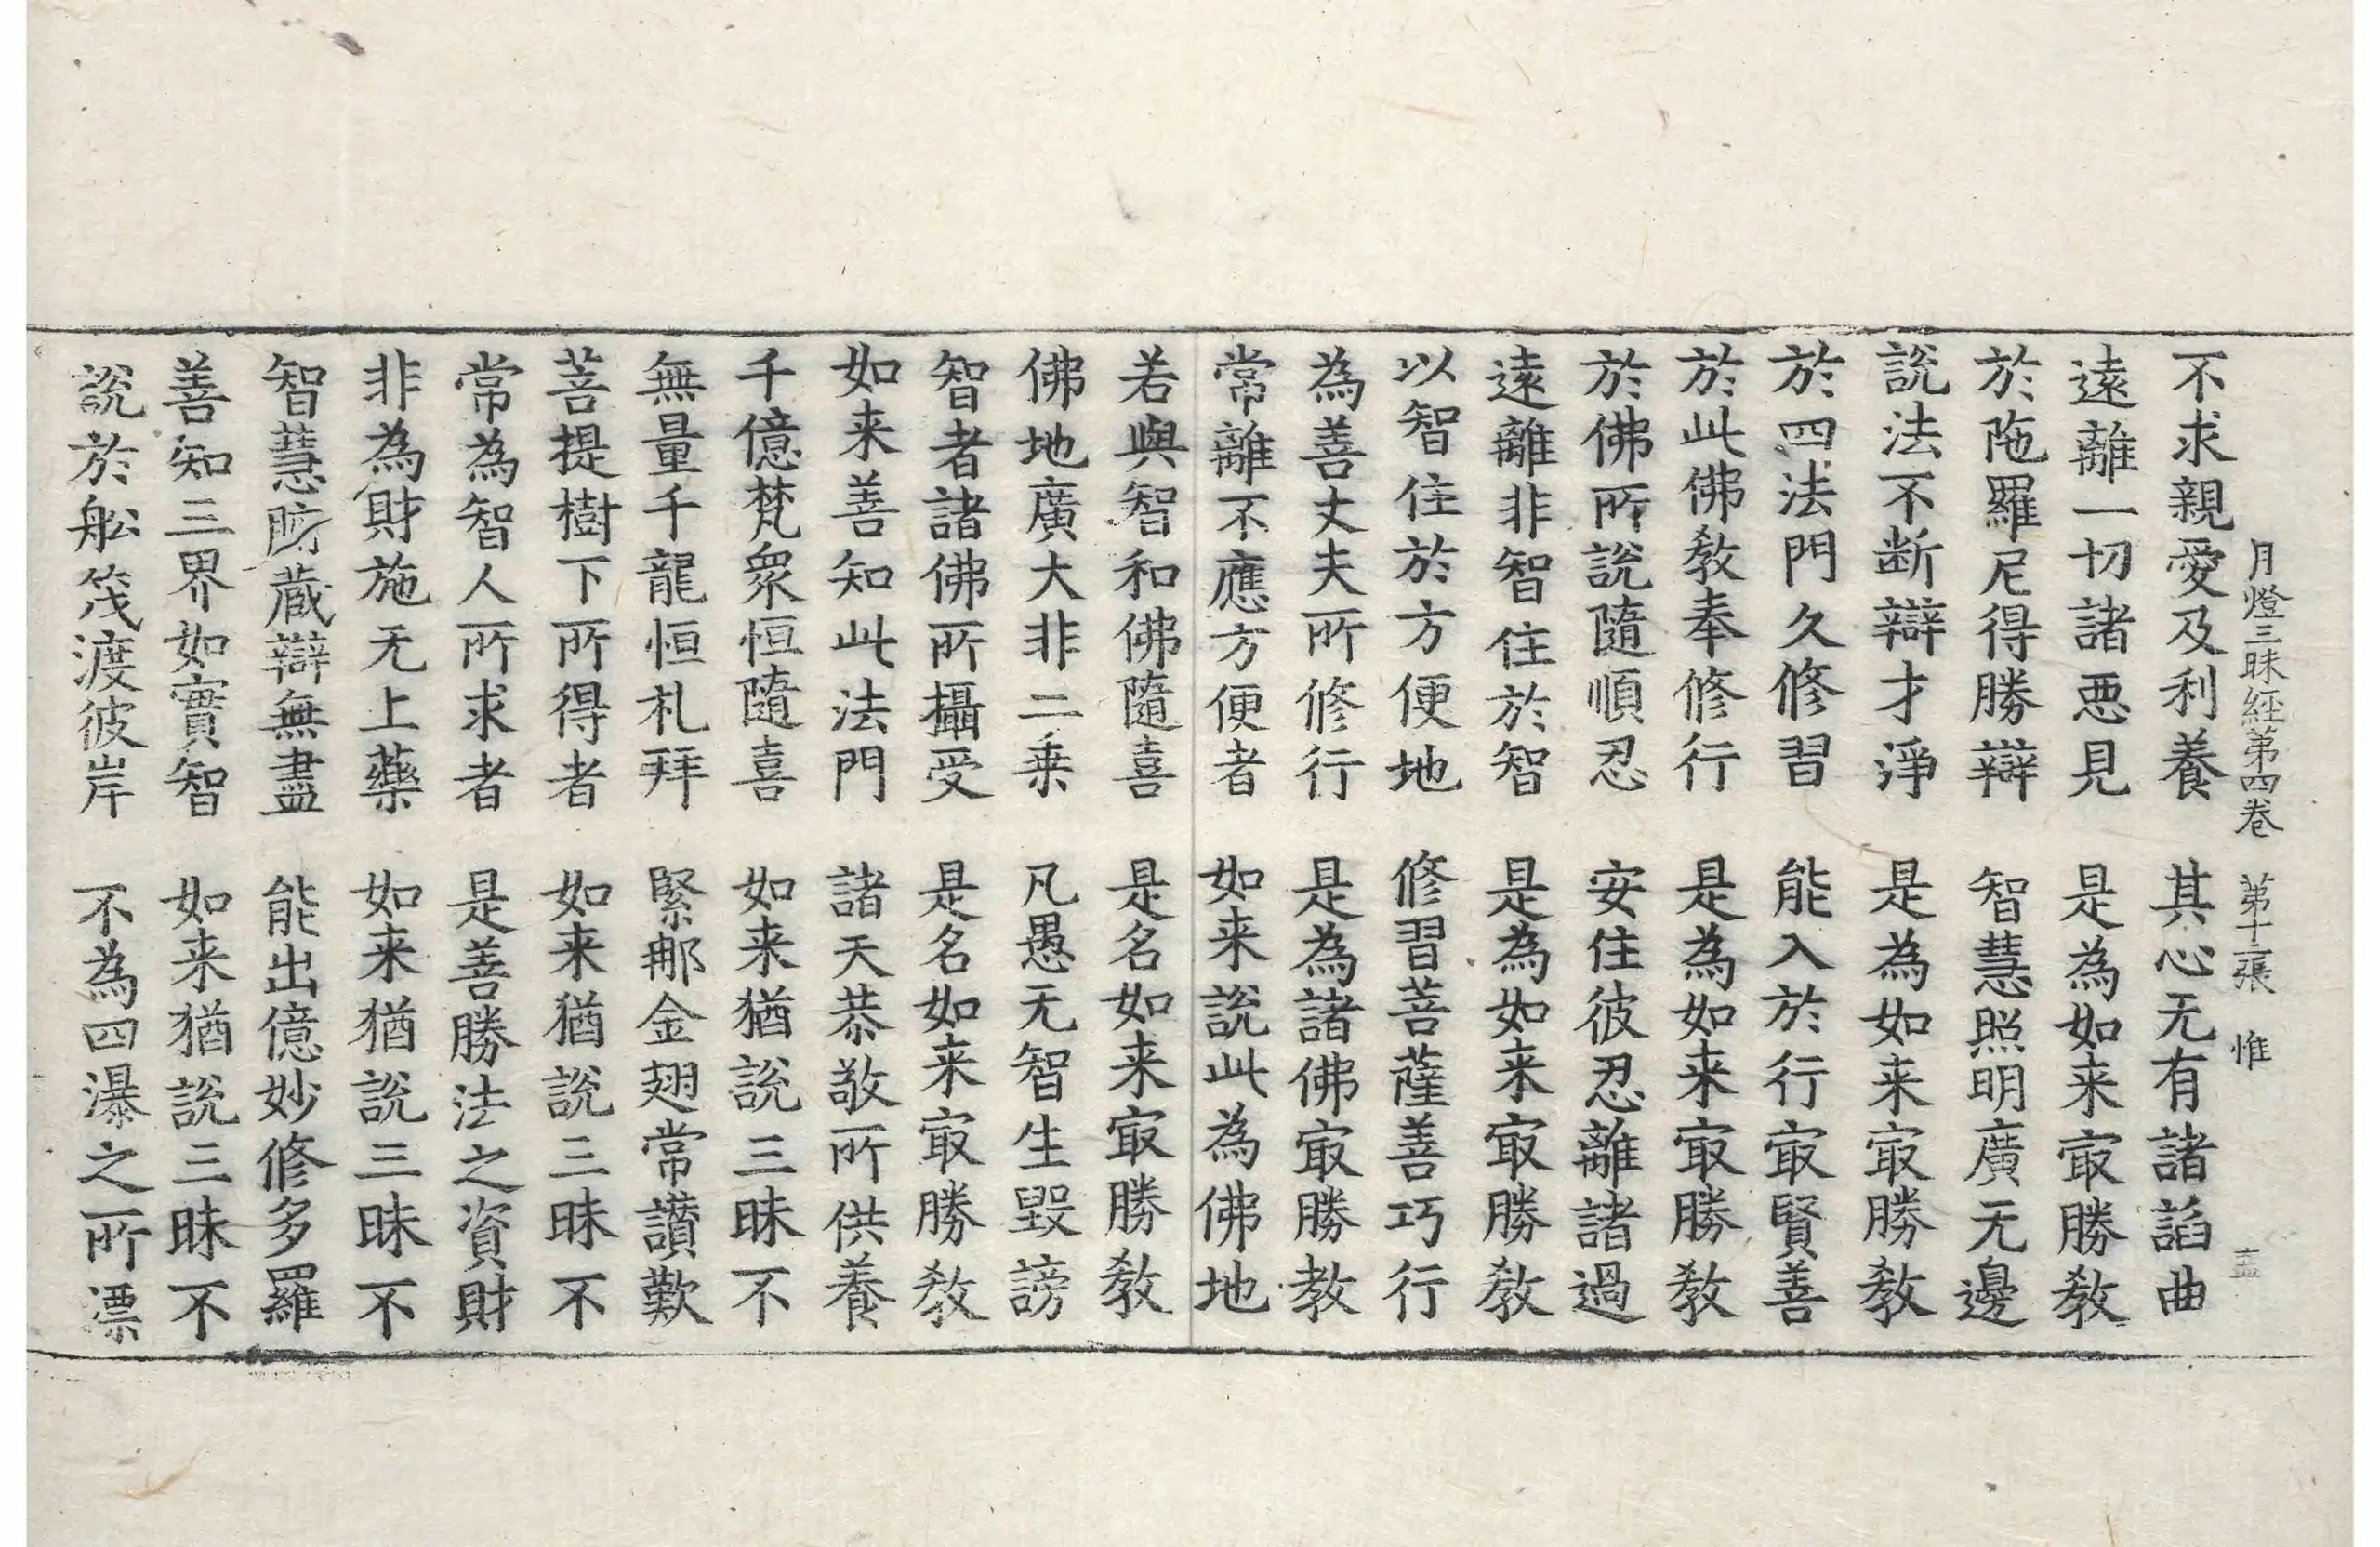 月燈三昧経第四巻 第十二張 惟
不求親愛及利養 其心无有諸諂曲
遠離一切諸悪見 是為如来㝡勝教
於陁羅尼得勝辯 智慧照明廣无邊
說法不断辯才淨 是為如来㝡勝教
於四法門久修習 能入於行㝡賢善
於此佛教奉修行 是為如来㝡勝教
於佛所說隨順忍 安住彼忍離諸過
遠離非智住於智 是為如来㝡勝教
以智住於方便地 修習菩薩善巧行
為善丈夫所修行 是為諸佛㝡勝教
常離不應方便者 如来說此為佛地
若與智和佛隨喜 是名如来㝡勝教
佛地廣大非二乗 凡愚无智生毀謗
智者諸佛所攝受 是名如来㝡勝教
如来善知此法門 諸天恭敬所供養
千億梵衆恒隨喜 如来猶說三昧不
無量千龍恒礼拜 緊那金翅常讃歎
菩提樹下所得者 如来猶說三昧不
常為智人所求者 是善勝法之資財
非為財施无上藥 如来猶說三昧不
智慧府蔵辯無盡 能出億妙修多羅
善知三界如實智 如来猶說三昧不
說於舩筏渡彼岸 不為四瀑之所漂